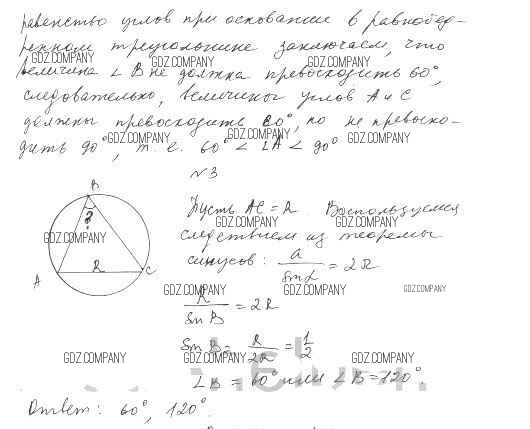 равенство углов при основании в равнобед-
ренном треугольнике заключаем, что
GDZ.COMPANY GDZ.COMPANY GDZ.COMPANY
величина ∠B не должна превосходить 60°,
следовательно, величины углов A и C
GDZ.COMPANY GDZ.COMPANY GDZ.COMPANY
должны превосходить 60°, но не превосхо-
GDZ.COMPANY GDZ.COMPANY GDZ.COMPANY
дить 90°, т. е. 60° < ∠A < 90°
№3
B
?
A
R
C
GDZ.COMPANY
Пусть AC = R. Воспользуемся
GDZ.COMPANY GDZ.COMPANY
следствием из теоремы
синусов: a / sin α = 2R
GDZ.COMPANY GDZ.COMPANY GDZ.COMPANY
R / sin B = 2R
sin B = R / 2R = 1 / 2
GDZ.COMPANY GDZ.COMPANY GDZ.COMPANY
∠B = 60° или ∠B = 120°.
Ответ: 60°, 120°.